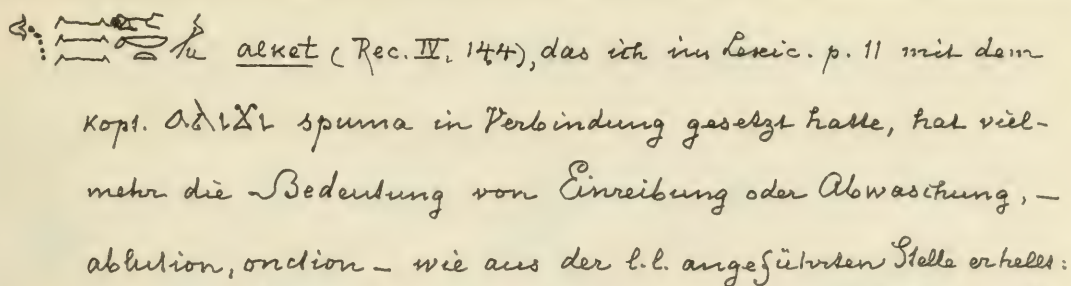 alket (Rec. IV, 144), das ich im Lexic. p. 11 mit dem
kopt. ⲁⲗⲓϫⲓ spuma in Verbindung gesetzt hatte, hat viel-
mehr die Bedeutung von Einreibung oder Abwaschung, –
ablution, onction – wie aus der l.l. angeführten Stelle erhellt: